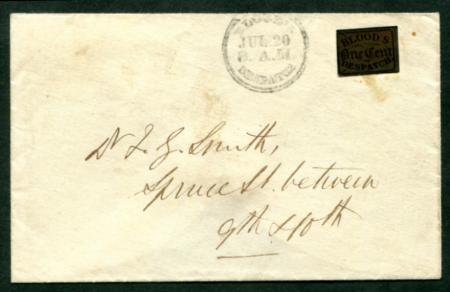 BLOOD'S
JUL 20
8 A.M.
DESPATCH
BLOOD'S
One Cent
DESPATCH
Dr Smith,
Spruce St. between
9th & 10th